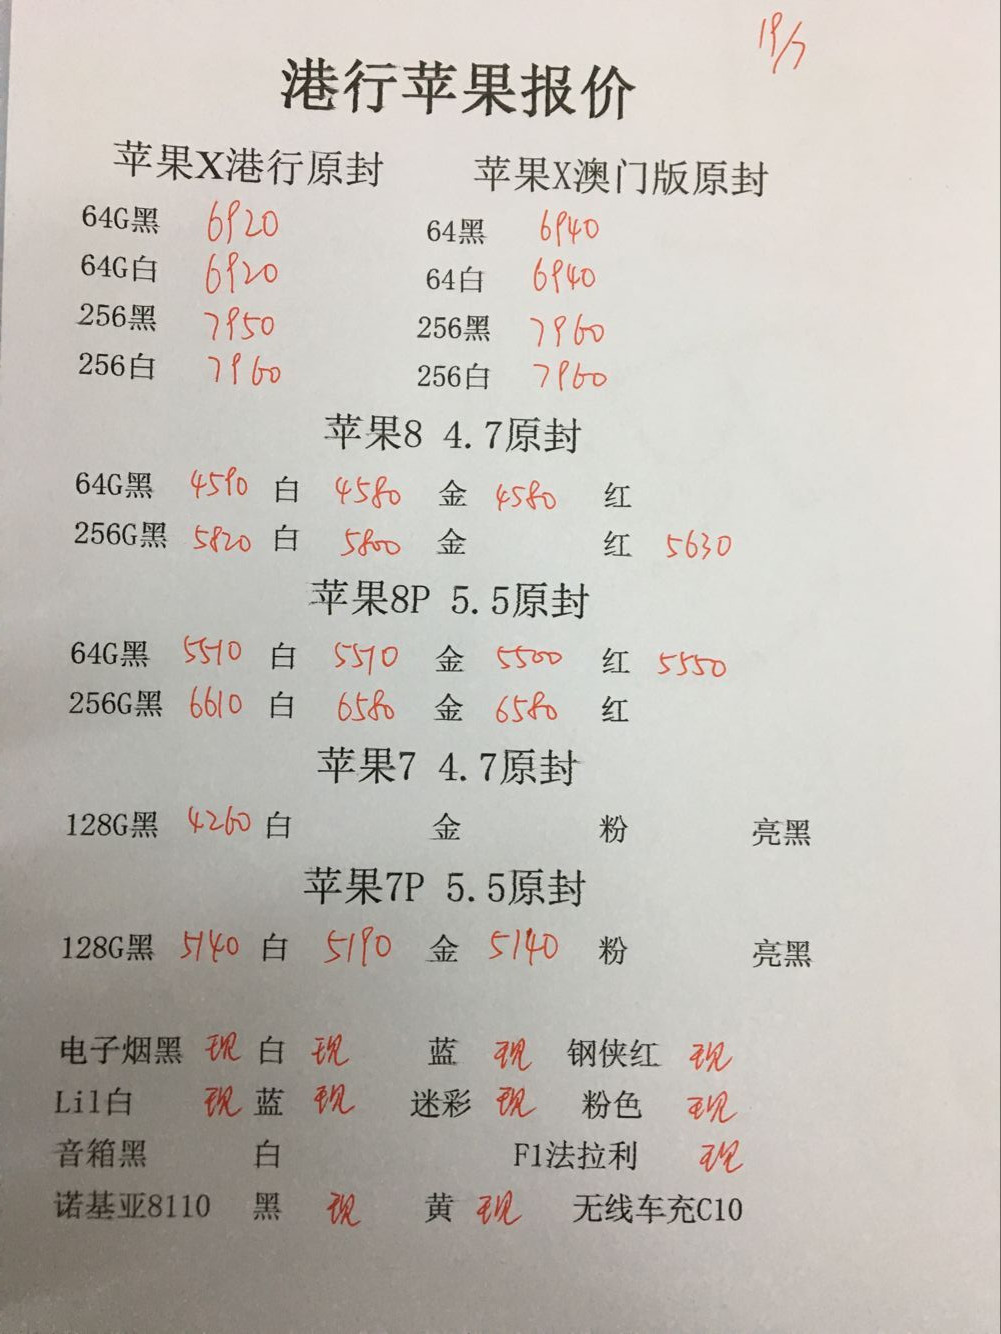 19/7
港行苹果报价
苹果X港行原封 苹果X澳门版原封
64G黑 6920 64黑 6940
64G白 6920 64白 6940
256黑 7950 256黑 7960
256白 7960 256白 7960
苹果8 4.7原封
64G黑 4590 白 4580 金 4580 红
256G黑 5820 白 5800 金 红 5630
苹果8P 5.5原封
64G黑 5510 白 5510 金 5500 红 5550
256G黑 6610 白 6580 金 6580 红
苹果7 4.7原封
128G黑 4260 白 金 粉 亮黑
苹果7P 5.5原封
128G黑 5140 白 5190 金 5140 粉 亮黑
电子烟黑 现 白 现 蓝 现 钢侠红 现
Lil白 现 蓝 现 迷彩 现 粉色 现
音箱黑 白 F1法拉利 现
诺基亚8110 黑 现 黄 现 无线车充C10